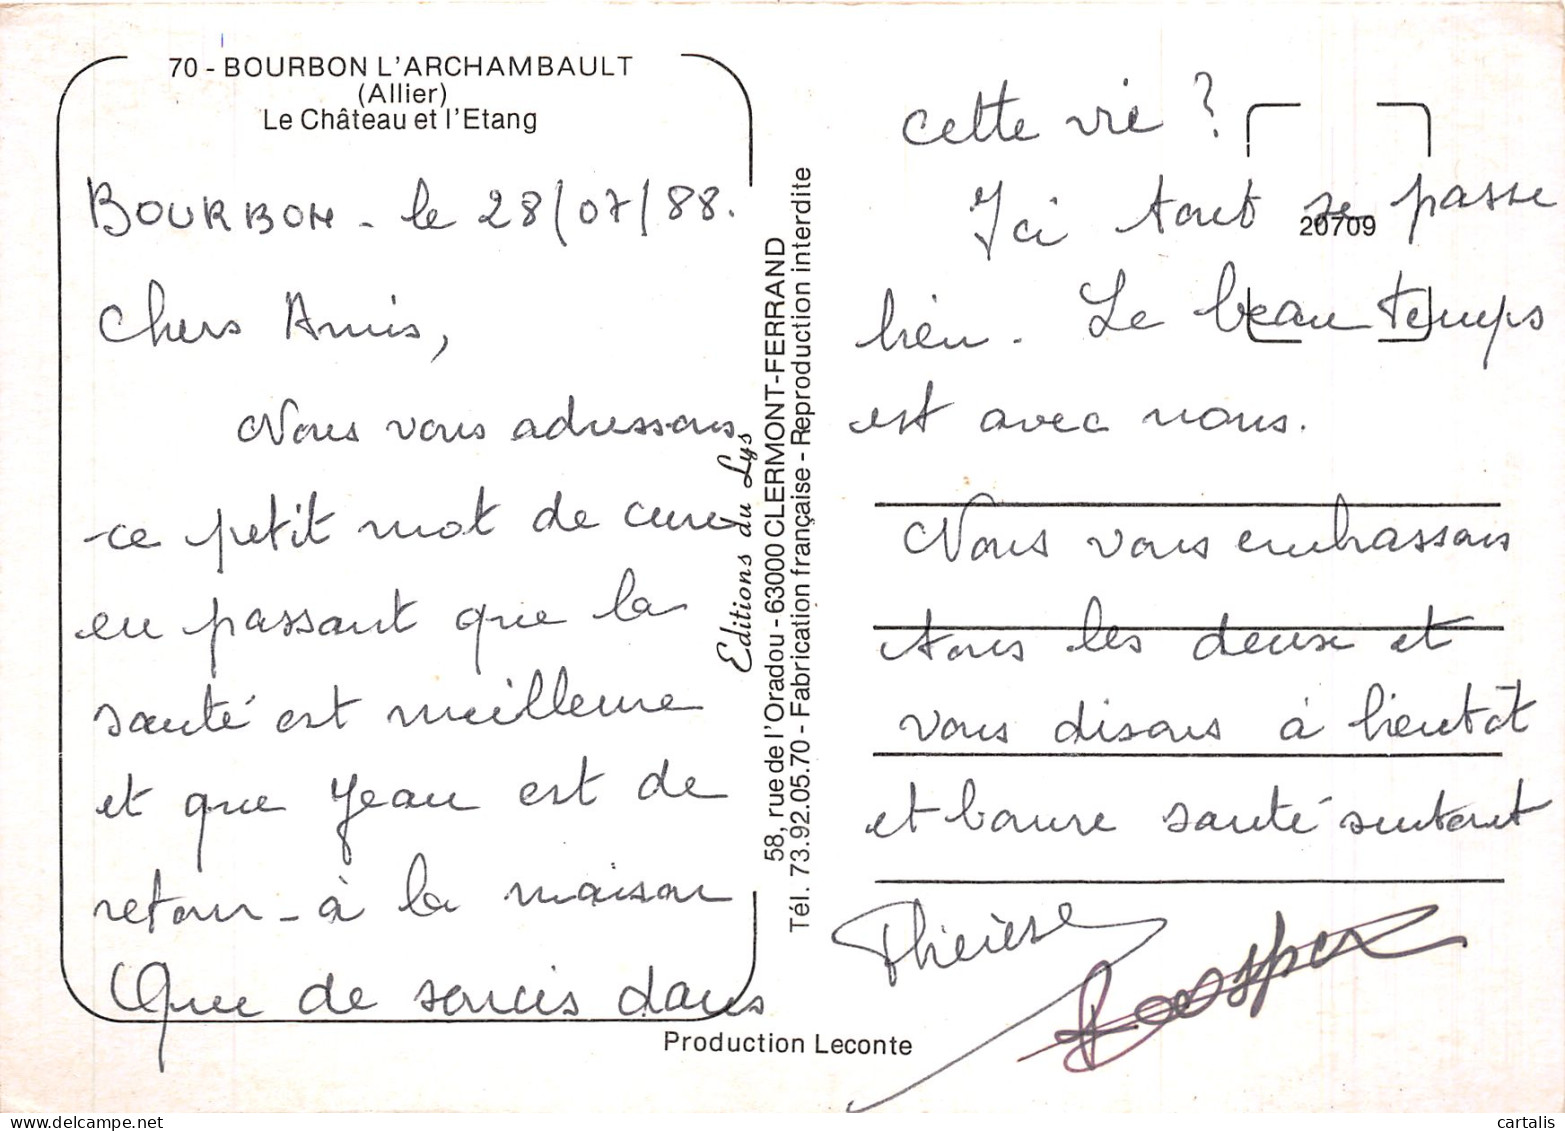 70 - BOURBON L'ARCHAMBAULT
(Allier)
Le Château et l'Etang
BOURBON - le 28/07/88.
Chers Amis,
Nous vous adressons
ce petit mot de cure
en passant que la
santé est meilleure
et que Jean est de
retour - à la maison
Que de soucis dans
cette vie ?
Ici tout se passe
bien. Le beau temps
est avec nous.
Nous vous embrassons
tous les deux et
vous disons à bientôt
et bonne santé surtout
Thérèse
20709
Editions du Lys
58, rue de l'Oradou - 63000 CLERMONT-FERRAND
Tél. 73.92.05.70 - Fabrication française - Reproduction interdite
Production Leconte
www.delcampe.net
cartalis